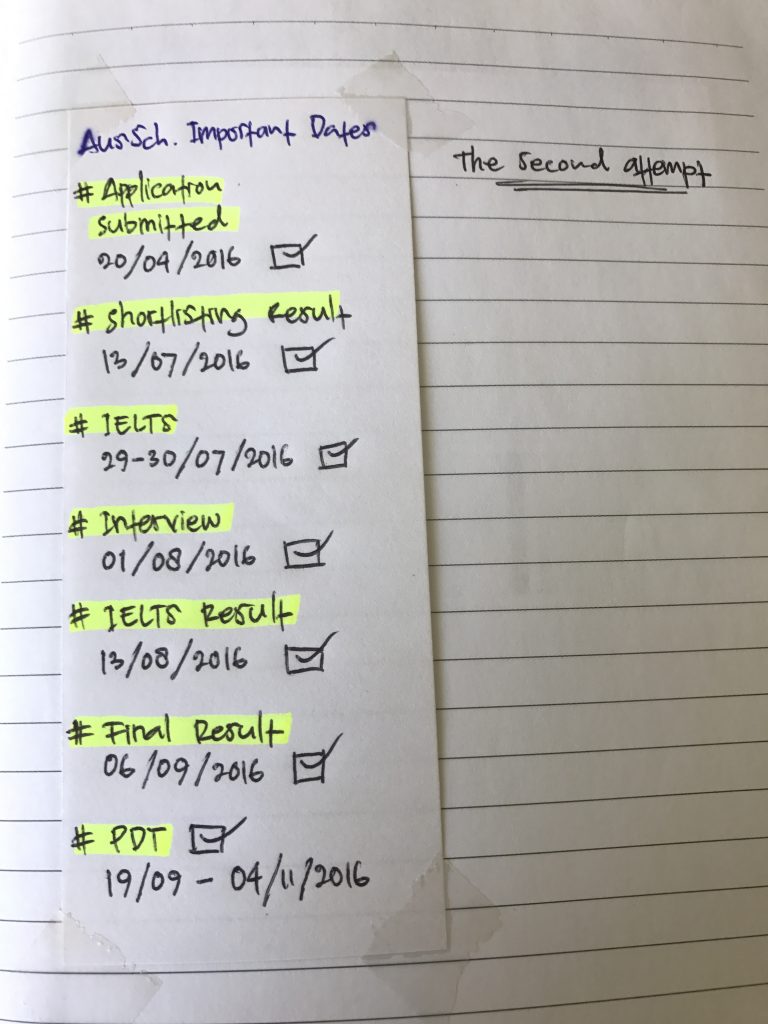 AusSch. Important Dates
The second attempt
# Application
submitted
20/04/2016
# Shortlisting Result
13/07/2016
# IELTS
29-30/07/2016
# Interview
01/08/2016
# IELTS Result
13/08/2016
# Final Result
06/09/2016
# PDT
19/09 - 04/11/2016